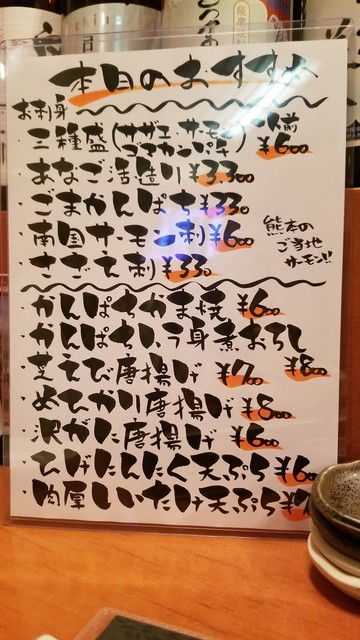 本日のおすすめ
お刺身
・三種盛(サザエ・サーモン・ゴマカンパチ) 一人前 ¥600
・あなご活造り ¥3.300
・ごまかんぱち ¥330
・南国サーモン刺 ¥600
熊本のご当地サーモン!!
・さざえ刺 ¥330
・かんぱちかま焼 ¥600
・かんぱちハラ身煮おろし ¥800
・芝えび唐揚げ ¥700
・めひかり唐揚げ ¥800
・沢がに唐揚げ ¥600
・ひげにんにく天ぷら ¥600
・肉厚しいたけ天ぷら ¥7